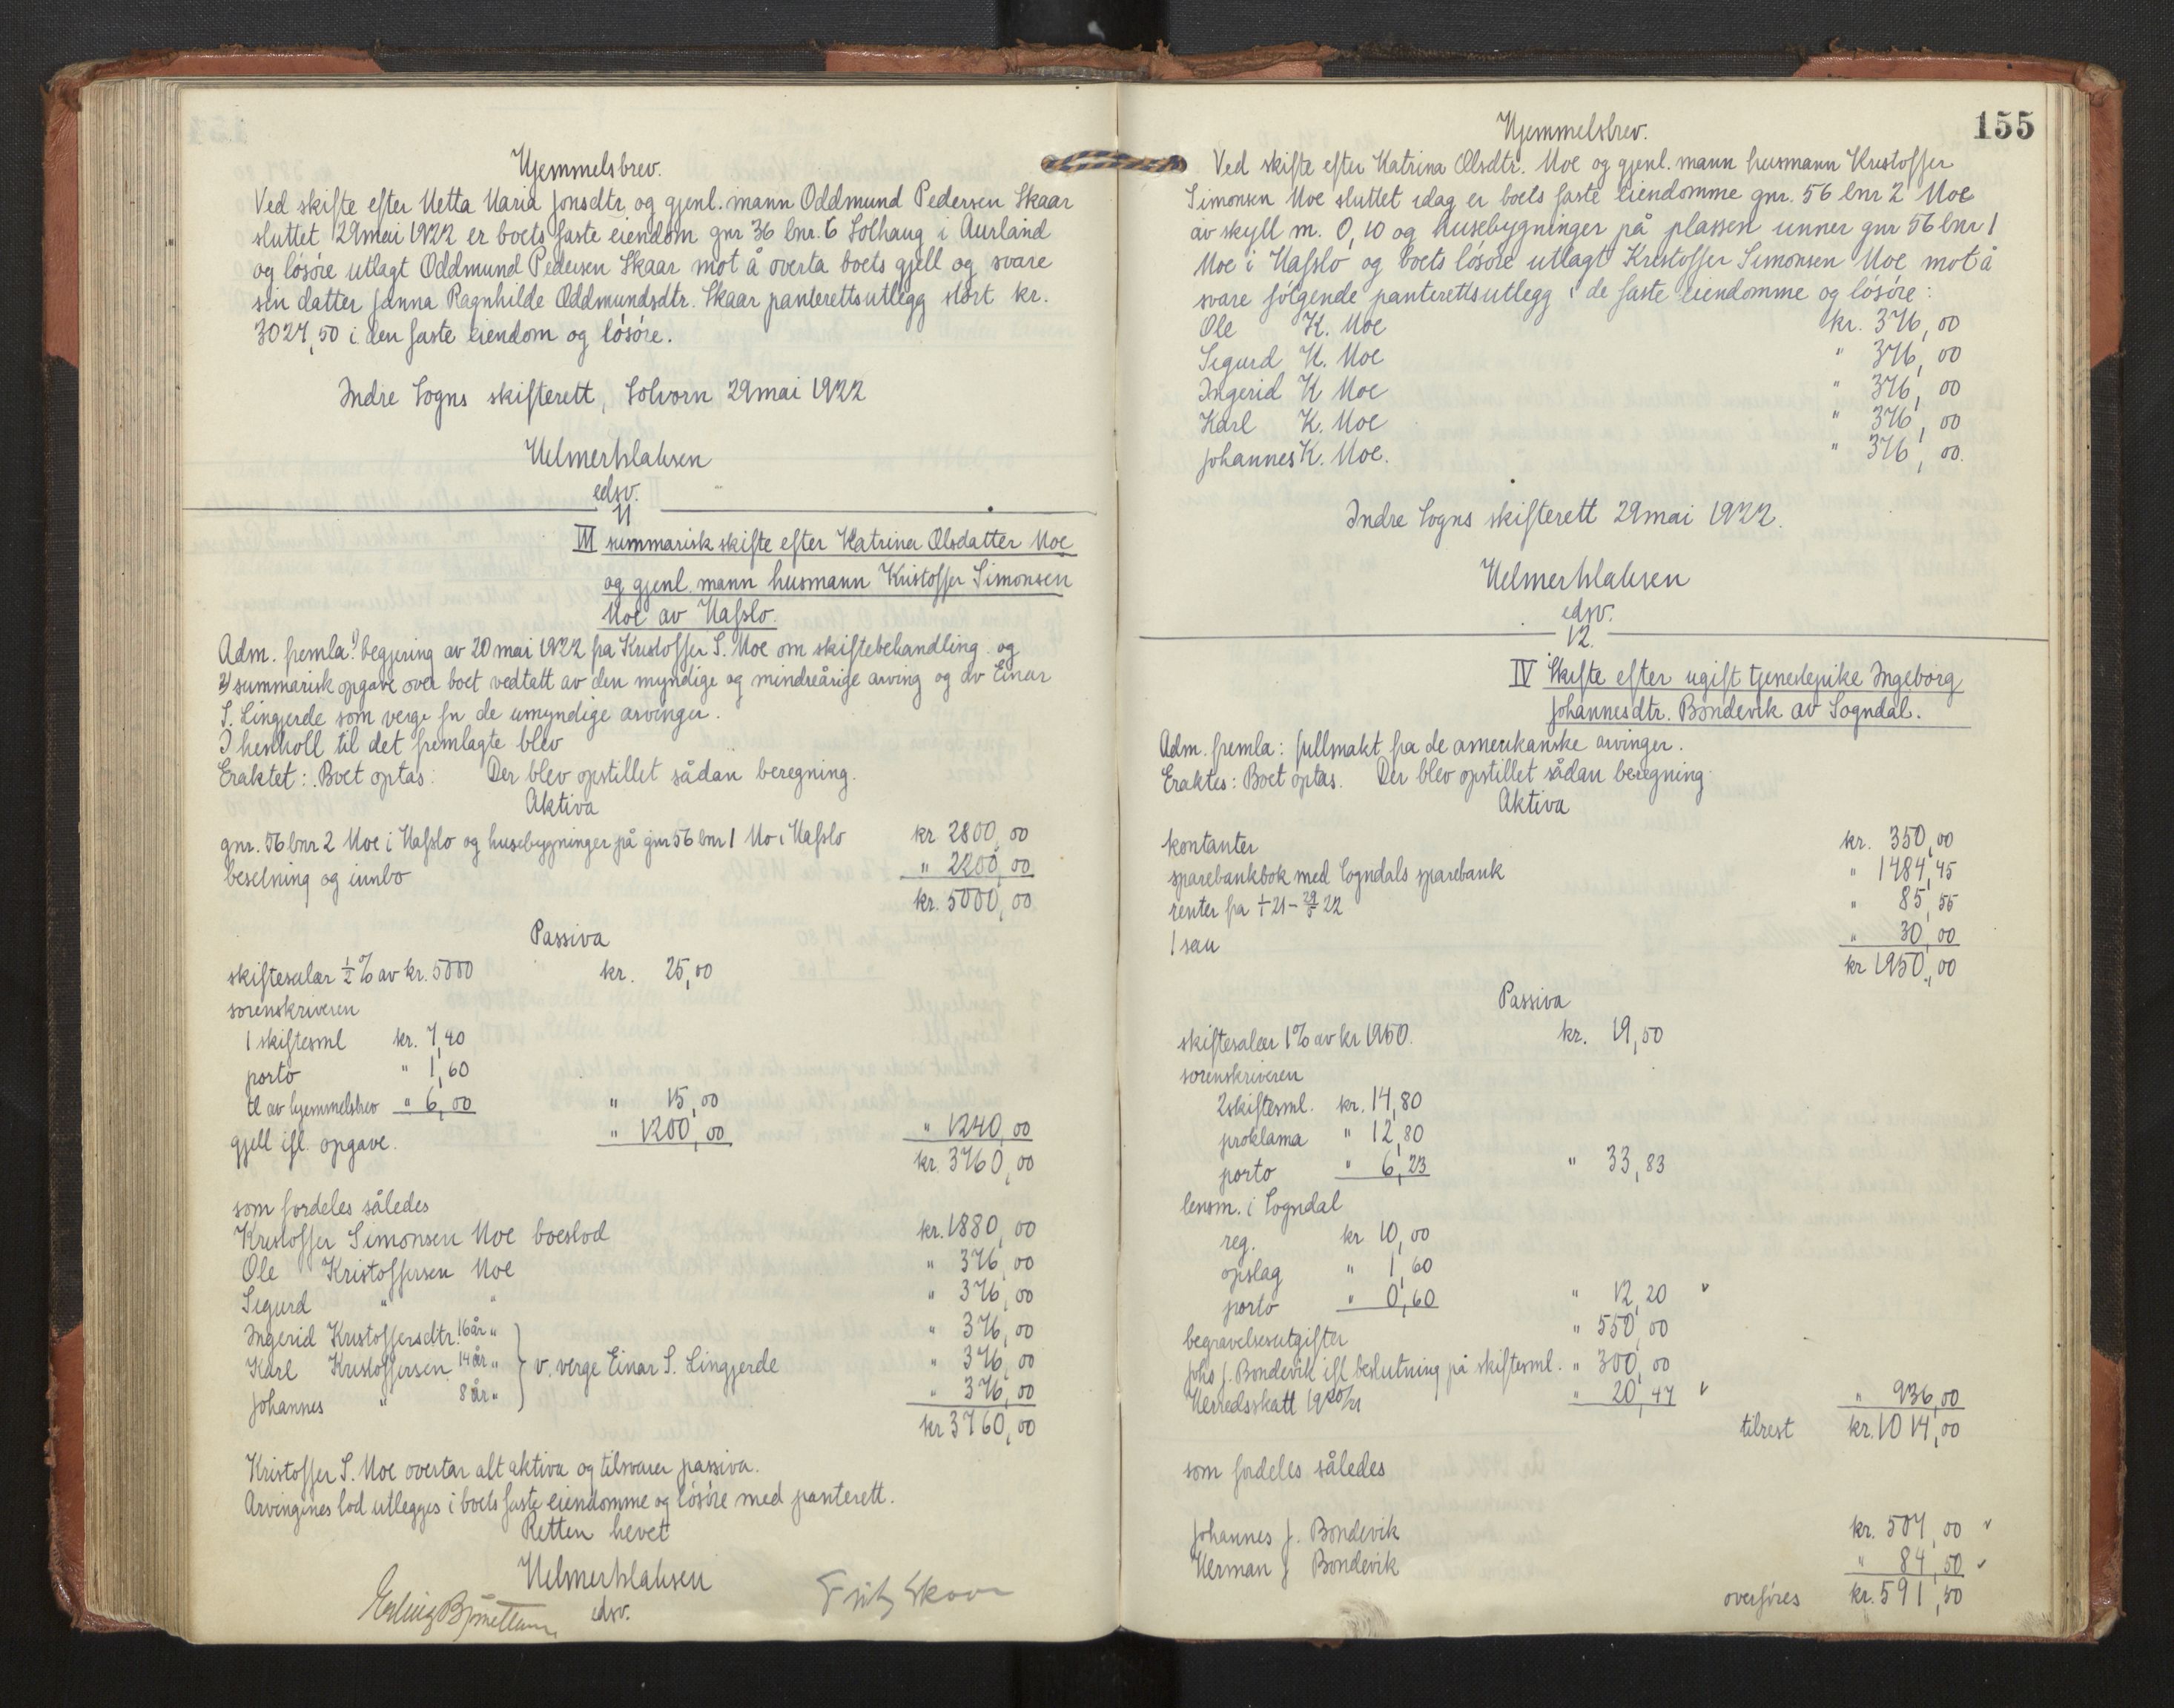 Hjemmelsbrev.
Ved skifte efter Metta Maria Jonsdtr. og gjenl. mann Oddmund Pedersen Skaar
sluttet 29 mai 1922 er boets faste eiendom gnr 36 bnr. 6 Solhaug i Aurland
og løsøre utlagt Oddmund Pedersen Skaar mot å overta boets gjell og svare
sin datter Janna Ragnhilde Oddmundsdtr. Skaar panterettsutlegg stort kr.
3027,50 i den faste eiendom og løsøre.
Indre Sogns skifterett, Solvorn 29 mai 1922
edsv.
11
III summarisk skifte efter Katrina Olsdatter Moe
og gjenl. mann husmann Kristoffer Simonsen
Moe av Hafslo.
Adm. fremla: 1) begjering av 20 mai 1922 fra Kristoffer S. Moe om skiftebehandling og
2) summarisk opgave over boet vedtatt av den myndige og mindreårige arving og av Einar
S. Lingjerde som verge for de umyndige arvinger.
I henholl til det fremlagte blev
Eraktet: Boet optas. Der blev opstillet sådan beregning.
Aktiva
gnr. 56 bnr 2 Moe i Hafslo og husebygninger på gnr 56 bnr 1 Mo i Hafslo kr 2800,00
besetning og innbo " 2200,00
kr. 5000,00
Passiva
skiftesalær ½ % av kr. 5000 kr. 25,00
sorenskriveren
1 skiftesml kr. 7,40
porto " 1,60
tl av hjemmelsbrev " 6,00 " 15,00
gjell ifl. opgave. " 1200,00 " 1240,00
kr. 3760,00
som fordeles således
Kristoffer Simonsen Moe boeslod kr. 1880,00
Ole Kristoffersen Moe " 376,00
Sigurd " " " 376,00
Ingerid Kristoffersdtr. 16 år " " 376,00
Karl Kristoffersen 14 år " } v. verge Einar S. Lingjerde " 376,00
Johannes " 8 år " " 376,00
kr 3760,00
Kristoffer S. Moe overtar alt aktiva og tilsvarer passiva.
Arvingenes lod utlegges i boets faste eiendomme og løsøre med panterett.
Retten hevet
edsv.
155
Hjemmelsbrev.
Ved skifte efter Katrina Olsdtr. Moe og gjenl. mann husmann Kristoffer
Simonsen Moe sluttet idag er boets faste eiendomme gnr. 56 bnr 2 Moe
av skyll m. 0,10 og husebygninger på plassen unner gnr 56 bnr 1
Moe i Hafslo og boets løsøre utlagt Kristoffer Simonsen Moe mot å
svare følgende panterettsutlegg i de faste eiendomme og løsøre:
Ole K. Moe kr. 376,00
Sigurd K. Moe " 376,00
Ingerid K Moe " 376,00
Karl K. Moe " 376,00
Johannes K. Moe. " 376,00.
Indre Sogns skifterett 29 mai 1922.
edsv.
12.
IV Skifte efter ugift tjenestepike Ingeborg
Johannesdtr. Bondevik av Sogndal.
Adm. fremla: fullmakt fra de amerikanske arvinger.
Eraktes: Boet optas. Der blev opstillet sådan beregning.
Aktiva
kontanter kr. 350,00
sparebankbok med Sogndals sparebank " 1484,45
renter fra 1/1 21 – 29/5 22 " 85,55
1 sau " 30,00
kr 1950,00
Passiva
skiftesalær 1 % av kr 1950. kr. 19,50
sorenskriveren
2 skiftesml. kr. 14,80
proklama " 12,80
porto " 6,23 " 33,83
lensm. i Sogndal
reg. kr 10,00
opslag " 1,60
porto " 0,60 " 12,20 v
begravelsesutgifter " 550,00
Johs J. Bondevik ifl beslutning på skiftesml. " 300,00
Herredsskatt 1920/21 " 20,47 v " 936,00
tilrest kr. 1014,00
som fordeles således
Johannes J. Bondevik kr. 507,00 v
Herman J Bondevik " 84,50 v
overføres kr. 591,50